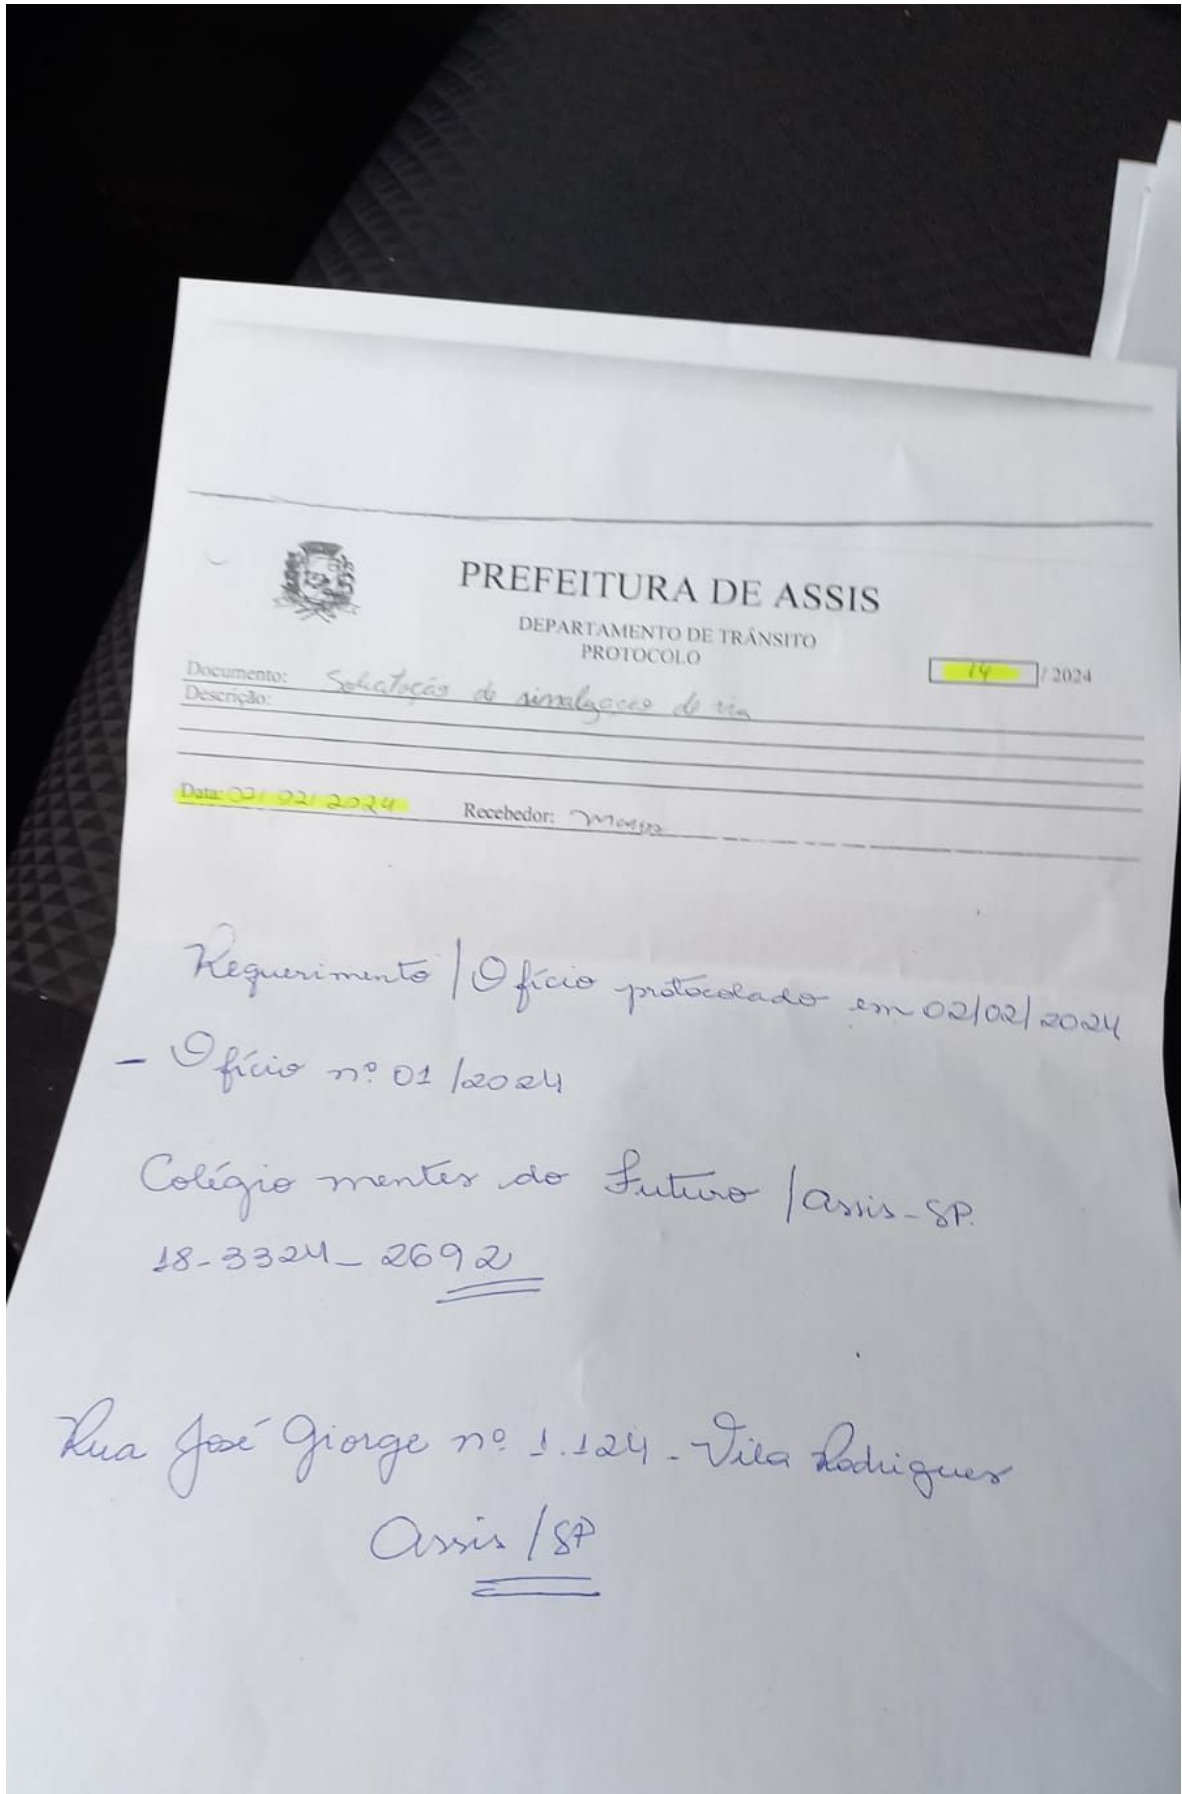 PREFEITURA DE ASSIS
DEPARTAMENTO DE TRÂNSITO
PROTOCOLO
14 / 2024
Documento: Solicitação de de via
Descrição:
Data: 02/02/2024 Recebedor:
Requerimento / Ofício protocolado em 02/02/2024
- Ofício nº 01/2024
Colégio mentes do Futuro / Assis-SP.
18-3324-2692
Rua José Giorge nº 1.124 - Vila Rodrigues
Assis/SP